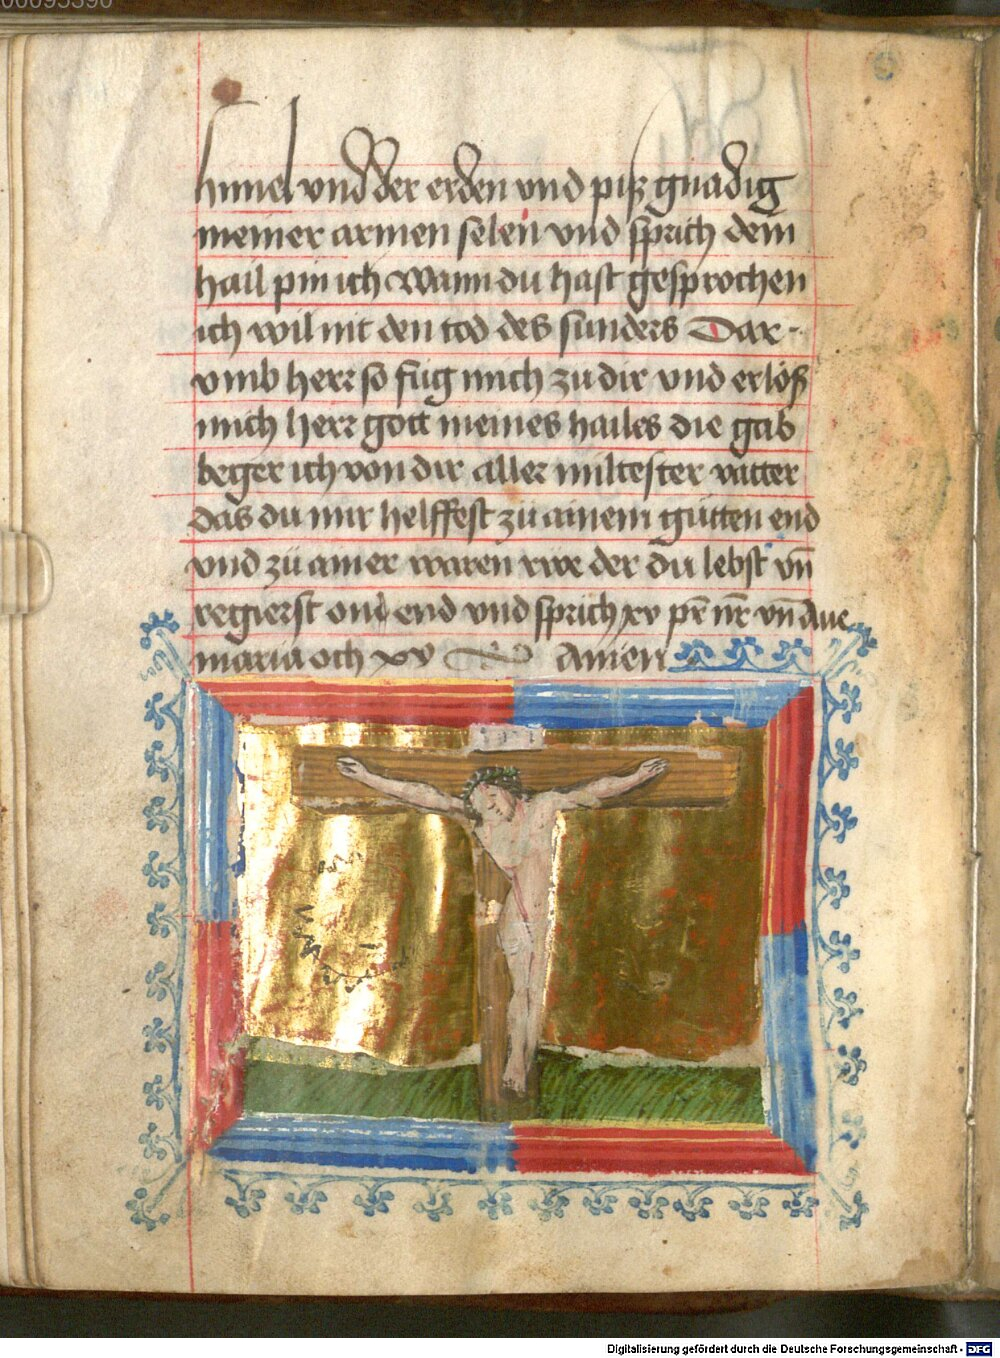 himel vnd der erden vnd piß gnadig
meiner armen selen vnd sprich dem
hail pin ich Wann du hast gesprochen
ich wil nit den tod des sunders Dar-
vmb herr so fug mich zu dir vnd erlös
mich herr gott meines hailes die gab
beger ich von dir aller miltester vatter
das du mir helffest zü ainem gütten end
vnd zü ainer waren rwe der du lebst vn̄
regierst on end vnd sprich xv pr̄ nr̄ vn̄ Aue
maria och xv Amen
Digitalisierung gefördert durch die Deutsche Forschungsgemeinschaft - DFG